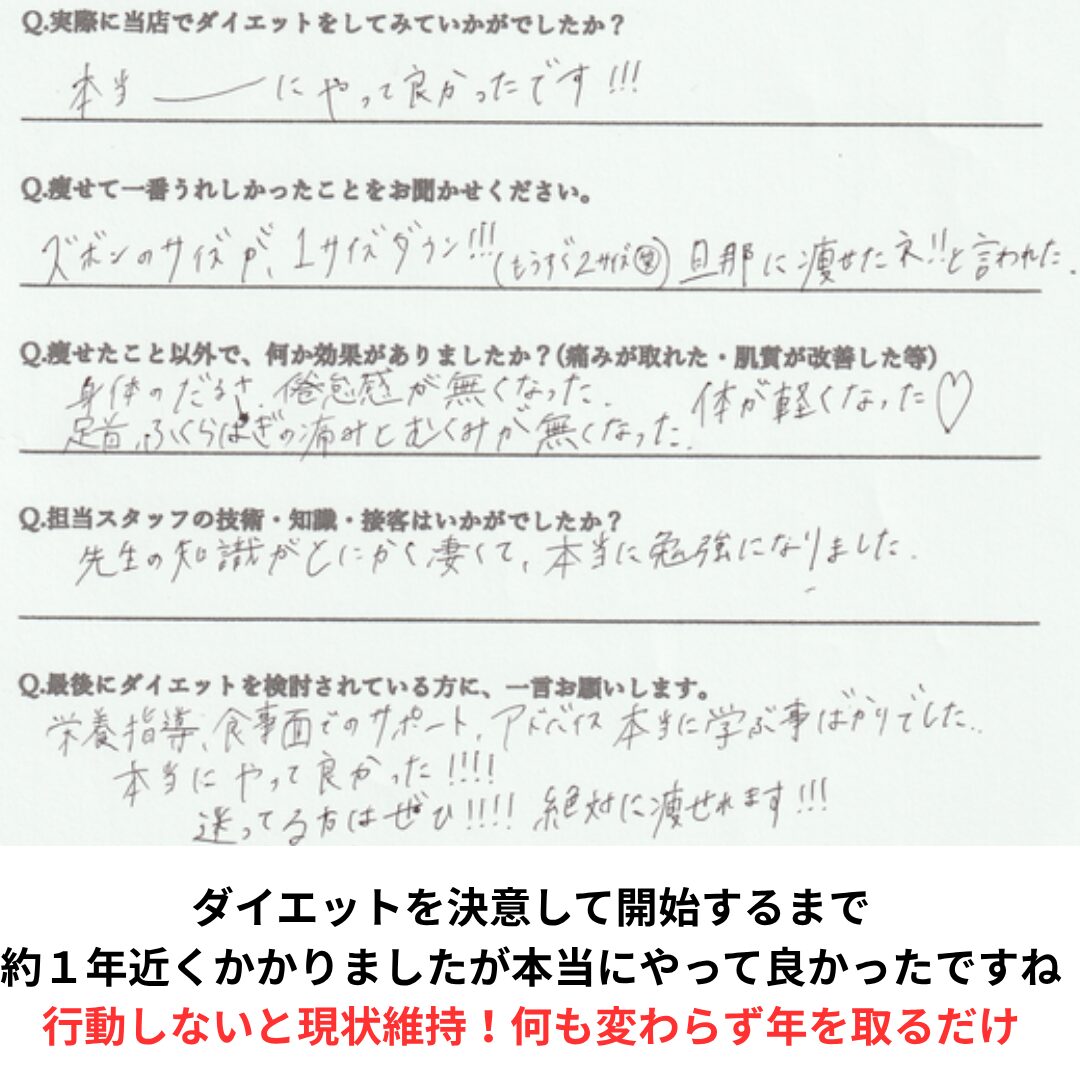 Q.実際に当店でダイエットをしてみていかがでしたか？
本当――にやって良かったです!!!
Q.痩せて一番うれしかったことをお聞かせください。
ズボンのサイズが、1サイズダウン!!!(もうすぐ2サイズ㊗) 旦那に痩せたネ!!と言われた.
Q.痩せたこと以外で、何か効果がありましたか？(痛みが取れた・肌質が改善した等)
身体のだるさ.倦怠感が無くなった. 体が軽くなった♡
足首、ふくらはぎの痛みとむくみが無くなった.
Q.担当スタッフの技術・知識・接客はいかがでしたか？
先生の知識がとにかく凄くて、本当に勉強になりました.
Q.最後にダイエットを検討されている方に、一言お願いします。
栄養指導、食事面でのサポート、アドバイス 本当に学ぶ事ばかりでした.
本当にやって良かった!!!!
迷ってる方はぜひ!!!! 絶対に痩せれます!!!
ダイエットを決意して開始するまで
約１年近くかかりましたが本当にやって良かったですね
行動しないと現状維持！何も変わらず年を取るだけ